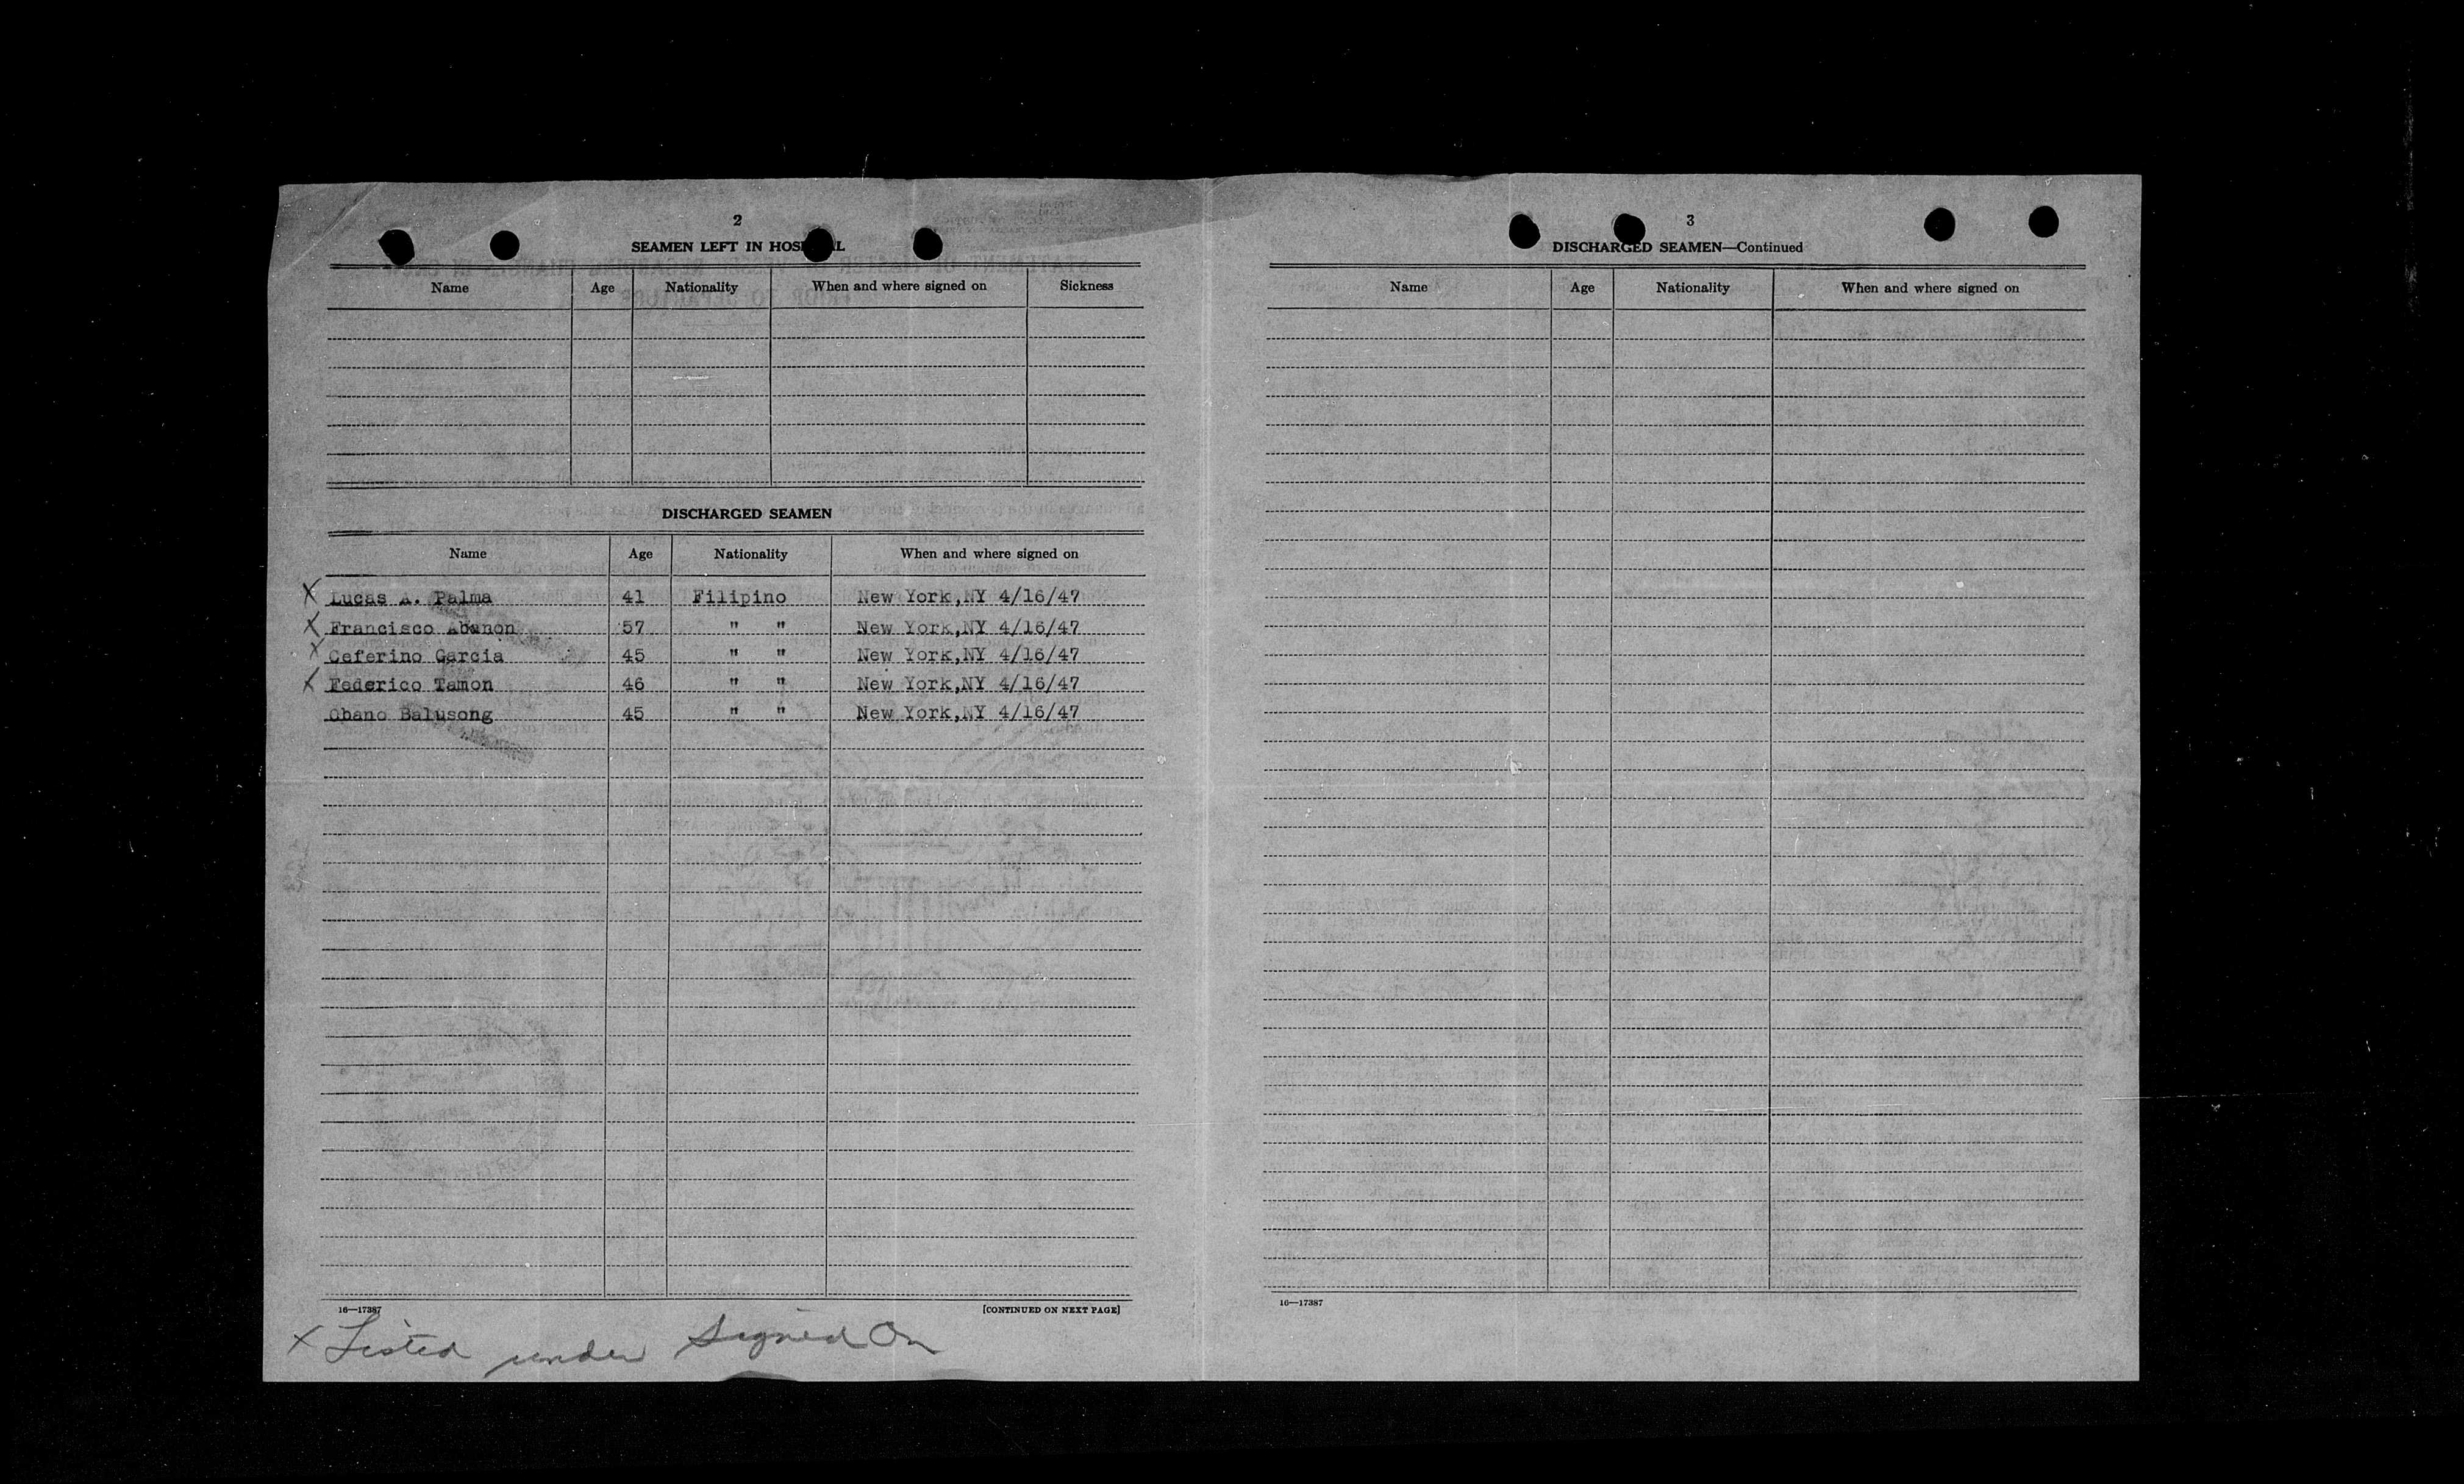 2
SEAMEN LEFT IN HOSPITAL
Name Age Nationality When and where signed on Sickness
DISCHARGED SEAMEN
Name Age Nationality When and where signed on
X Lucas A. Palma 41 Filipino New York,NY 4/16/47
X Francisco Abanon 57 " " New York,NY 4/16/47
X Ceferino Garcia 45 " " New York,NY 4/16/47
X Federico Tamon 46 " " New York,NY 4/16/47
Obano Balusong 45 " " New York,NY 4/16/47
16—17387
[CONTINUED ON NEXT PAGE]
x Listed under Signed On
3
DISCHARGED SEAMEN—Continued
Name Age Nationality When and where signed on
16—17387